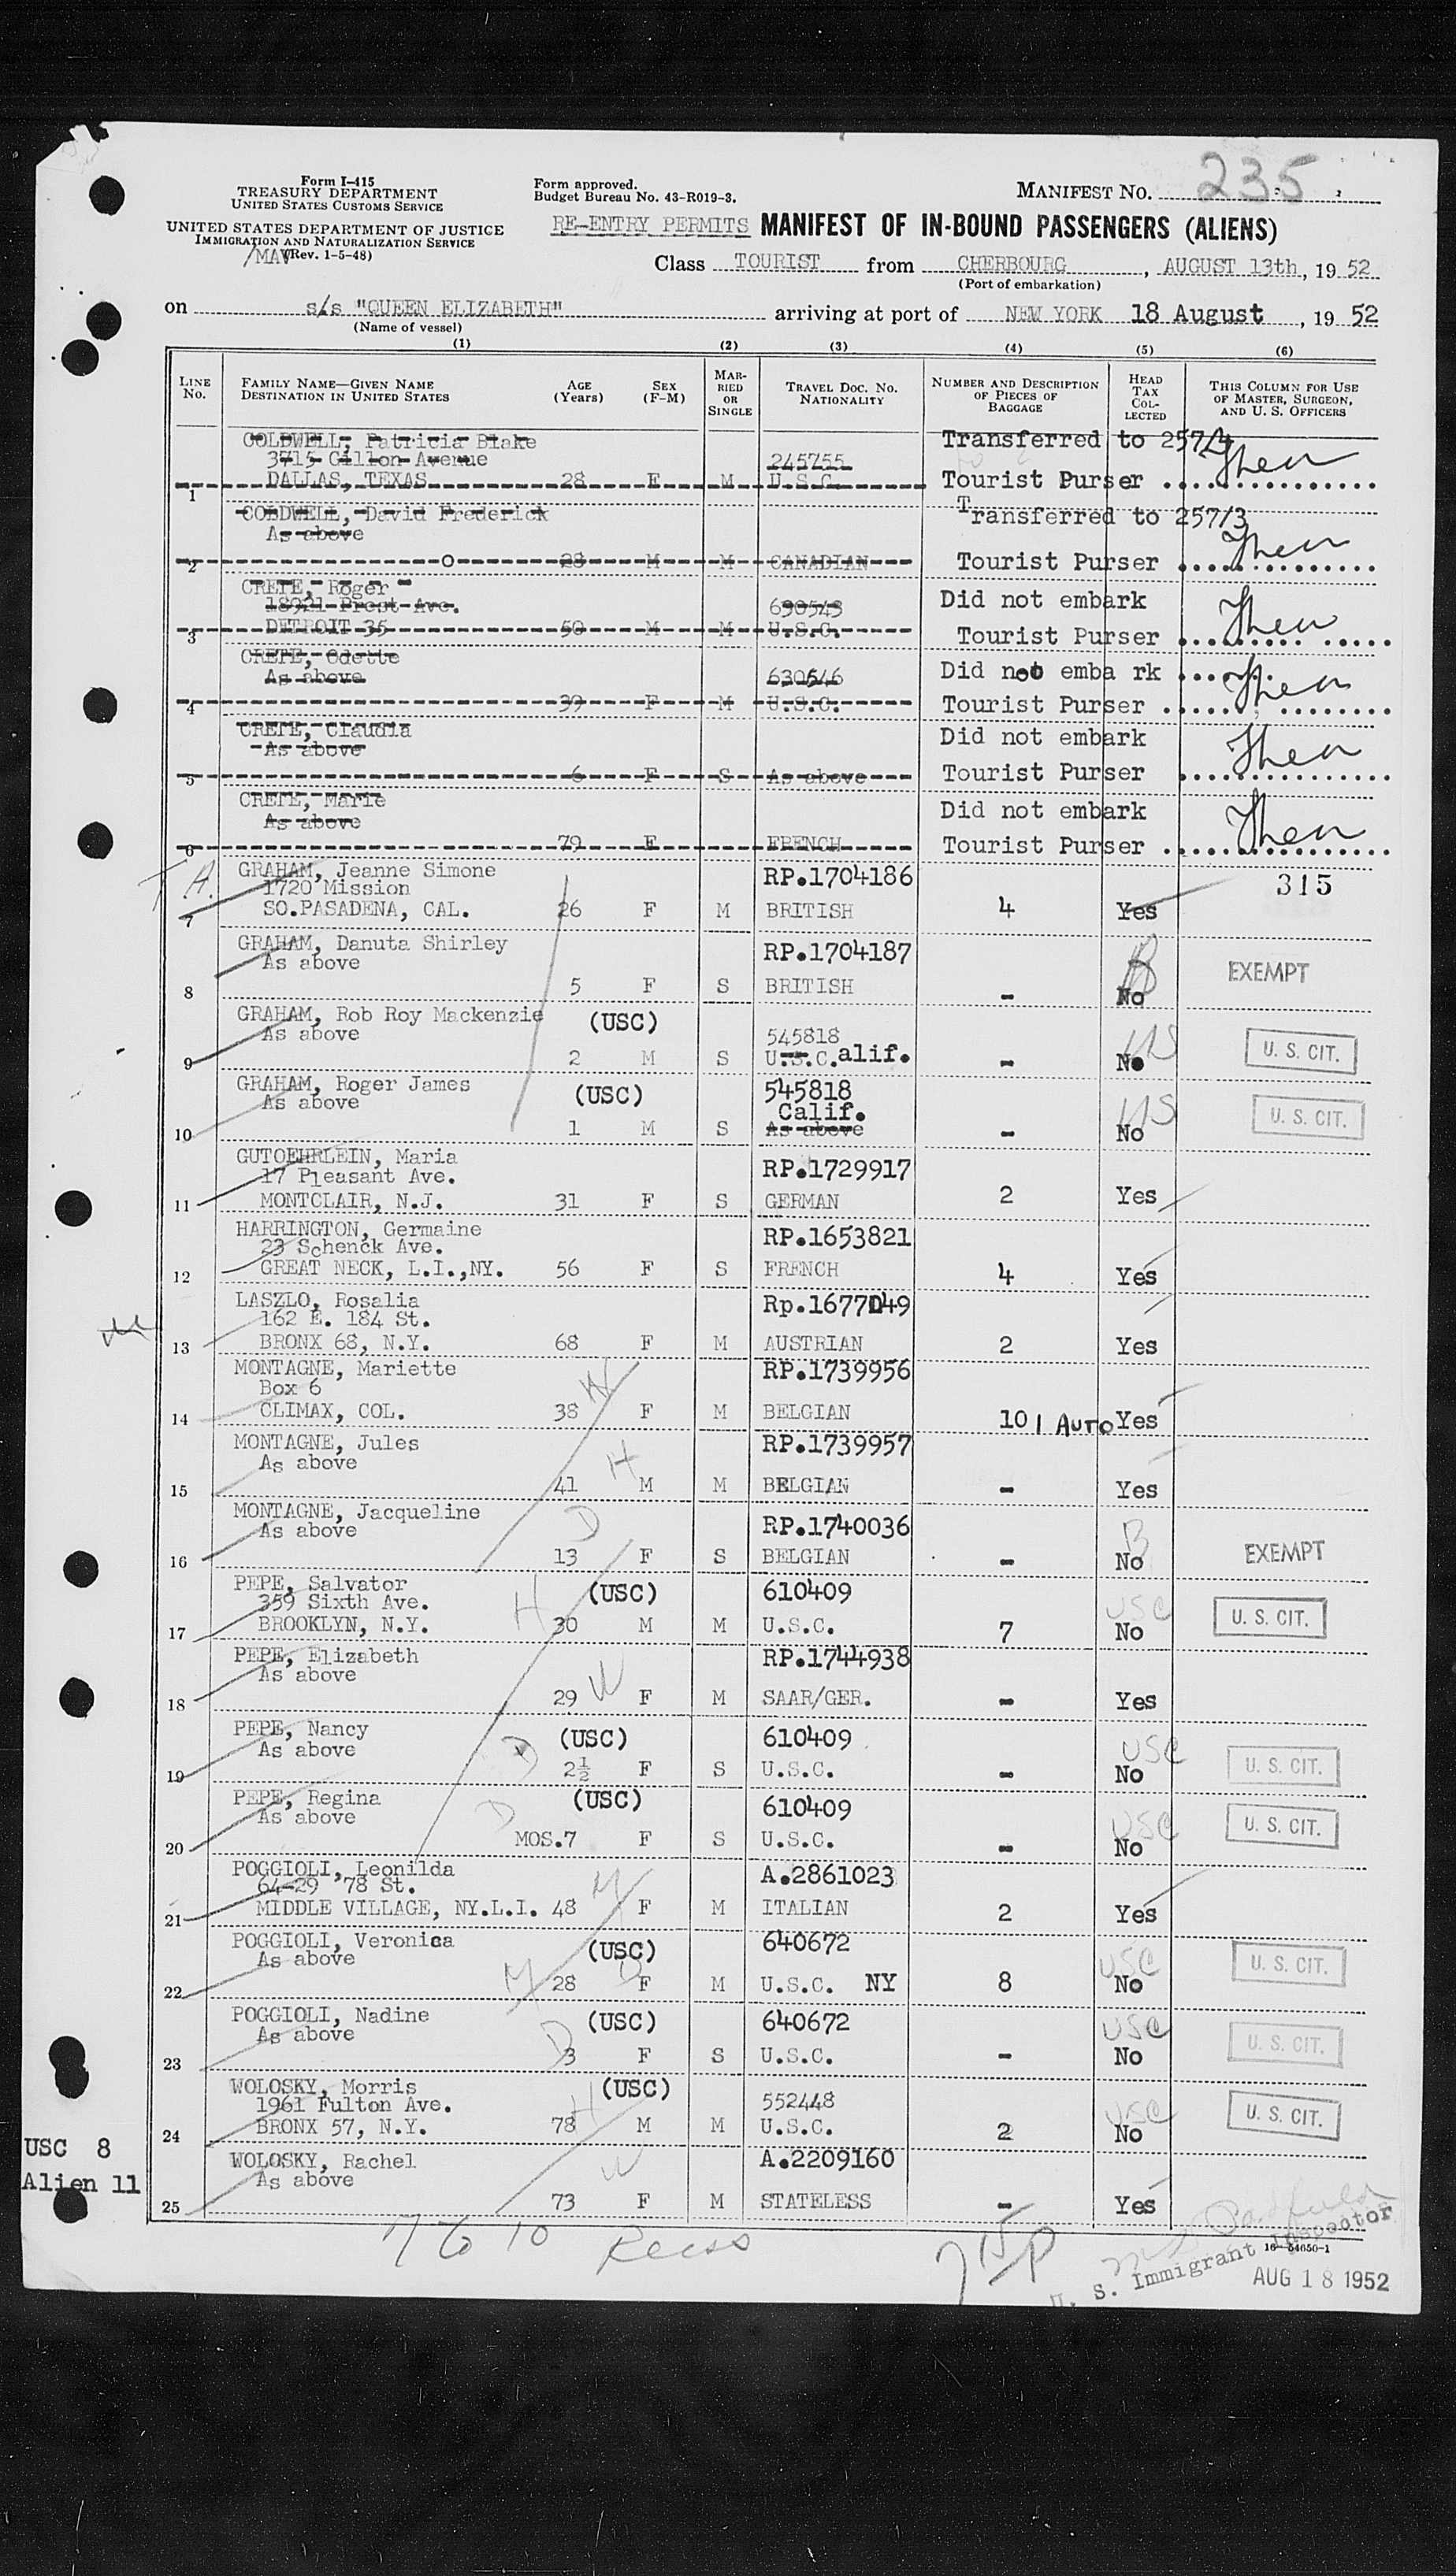 Form I-415
TREASURY DEPARTMENT
UNITED STATES CUSTOMS SERVICE
UNITED STATES DEPARTMENT OF JUSTICE
IMMIGRATION AND NATURALIZATION SERVICE
/MAV (Rev. 1-5-48)
Form approved.
Budget Bureau No. 43-R019-3.
MANIFEST NO. 235
RE-ENTRY PERMITS MANIFEST OF IN-BOUND PASSENGERS (ALIENS)
Class TOURIST from CHERBOURG, AUGUST 13th, 1952
(Port of embarkation)
on s/s "QUEEN ELIZABETH" arriving at port of NEW YORK 18 August, 1952
(Name of vessel)
(1) (2) (3) (4) (5) (6)
LINE NO. FAMILY NAME—GIVEN NAME DESTINATION IN UNITED STATES AGE (Years) SEX (F-M) MARRIED OR SINGLE TRAVEL DOC. NO. NATIONALITY NUMBER AND DESCRIPTION OF PIECES OF BAGGAGE HEAD TAX COLLECTED THIS COLUMN FOR USE OF MASTER, SURGEON, AND U. S. OFFICERS
COLDWELL, Patricia Blake Transferred to 257/4
3715 Gillon Avenue 245755
1 DALLAS, TEXAS 28 F M U.S.C. Tourist Purser
COLDWELL, David Frederick Transferred to 257/3
As above
2 28 M M CANADIAN Tourist Purser
CRETE, Roger Did not embark
18921 Prest Ave. 630543
3 DETROIT 35 50 M M U.S.C. Tourist Purser
CRETE, Odette Did not emba rk
As above 630546
4 39 F M U.S.C. Tourist Purser
CRETE, Claudia Did not embark
As above
5 6 F S As above Tourist Purser
CRETE, Marie Did not embark
As above
6 79 F FRENCH Tourist Purser
GRAHAM, Jeanne Simone RP.1704186 315
1720 Mission
7 SO.PASADENA, CAL. 26 F M BRITISH 4 Yes
GRAHAM, Danuta Shirley RP.1704187
As above EXEMPT
8 5 F S BRITISH - No
GRAHAM, Rob Roy Mackenzie (USC)
As above 545818 US U. S. CIT.
9 2 M S U.S.C.alif. - No
GRAHAM, Roger James (USC) 545818
As above Calif. US U. S. CIT.
10 1 M S As above - No
GUTOEHRLEIN, Maria RP.1729917
17 Pleasant Ave.
11 MONTCLAIR, N.J. 31 F S GERMAN 2 Yes
HARRINGTON, Germaine RP.1653821
23 Schenck Ave.
12 GREAT NECK, L.I.,NY. 56 F S FRENCH 4 Yes
LASZLO, Rosalia Rp.1677049
162 E. 184 St.
13 BRONX 68, N.Y. 68 F M AUSTRIAN 2 Yes
MONTAGNE, Mariette RP.1739956
Box 6 W
14 CLIMAX, COL. 38 F M BELGIAN 10 1 AUTO Yes
MONTAGNE, Jules RP.1739957
As above H
15 41 M M BELGIAN - Yes
MONTAGNE, Jacqueline RP.1740036
As above D B EXEMPT
16 13 F S BELGIAN - No
PEPE, Salvator (USC) 610409
359 Sixth Ave. H USC U. S. CIT.
17 BROOKLYN, N.Y. 30 M M U.S.C. 7 No
PEPE, Elizabeth RP.1744938
As above W
18 29 F M SAAR/GER. - Yes
PEPE, Nancy (USC) 610409
As above D USC U. S. CIT.
19 2½ F S U.S.C. - No
PEPE, Regina (USC) 610409
As above D USC U. S. CIT.
20 MOS.7 F S U.S.C. - No
POGGIOLI, Leonilda A.2861023
64-29 78 St. M
21 MIDDLE VILLAGE, NY.L.I. 48 F M ITALIAN 2 Yes
POGGIOLI, Veronica (USC) 640672
As above USC U. S. CIT.
22 28 F M U.S.C. NY 8 No
POGGIOLI, Nadine (USC) 640672
As above D USC U. S. CIT.
23 3 F S U.S.C. - No
WOLOSKY, Morris (USC)
1961 Fulton Ave. H 552448 USC U. S. CIT.
24 BRONX 57, N.Y. 78 M M U.S.C. 2 No
WOLOSKY, Rachel A.2209160
As above W
25 73 F M STATELESS - Yes
USC 8
Alien 11
7 to 10
U. S. Immigrant Inspector
16—54650-1
AUG 18 1952